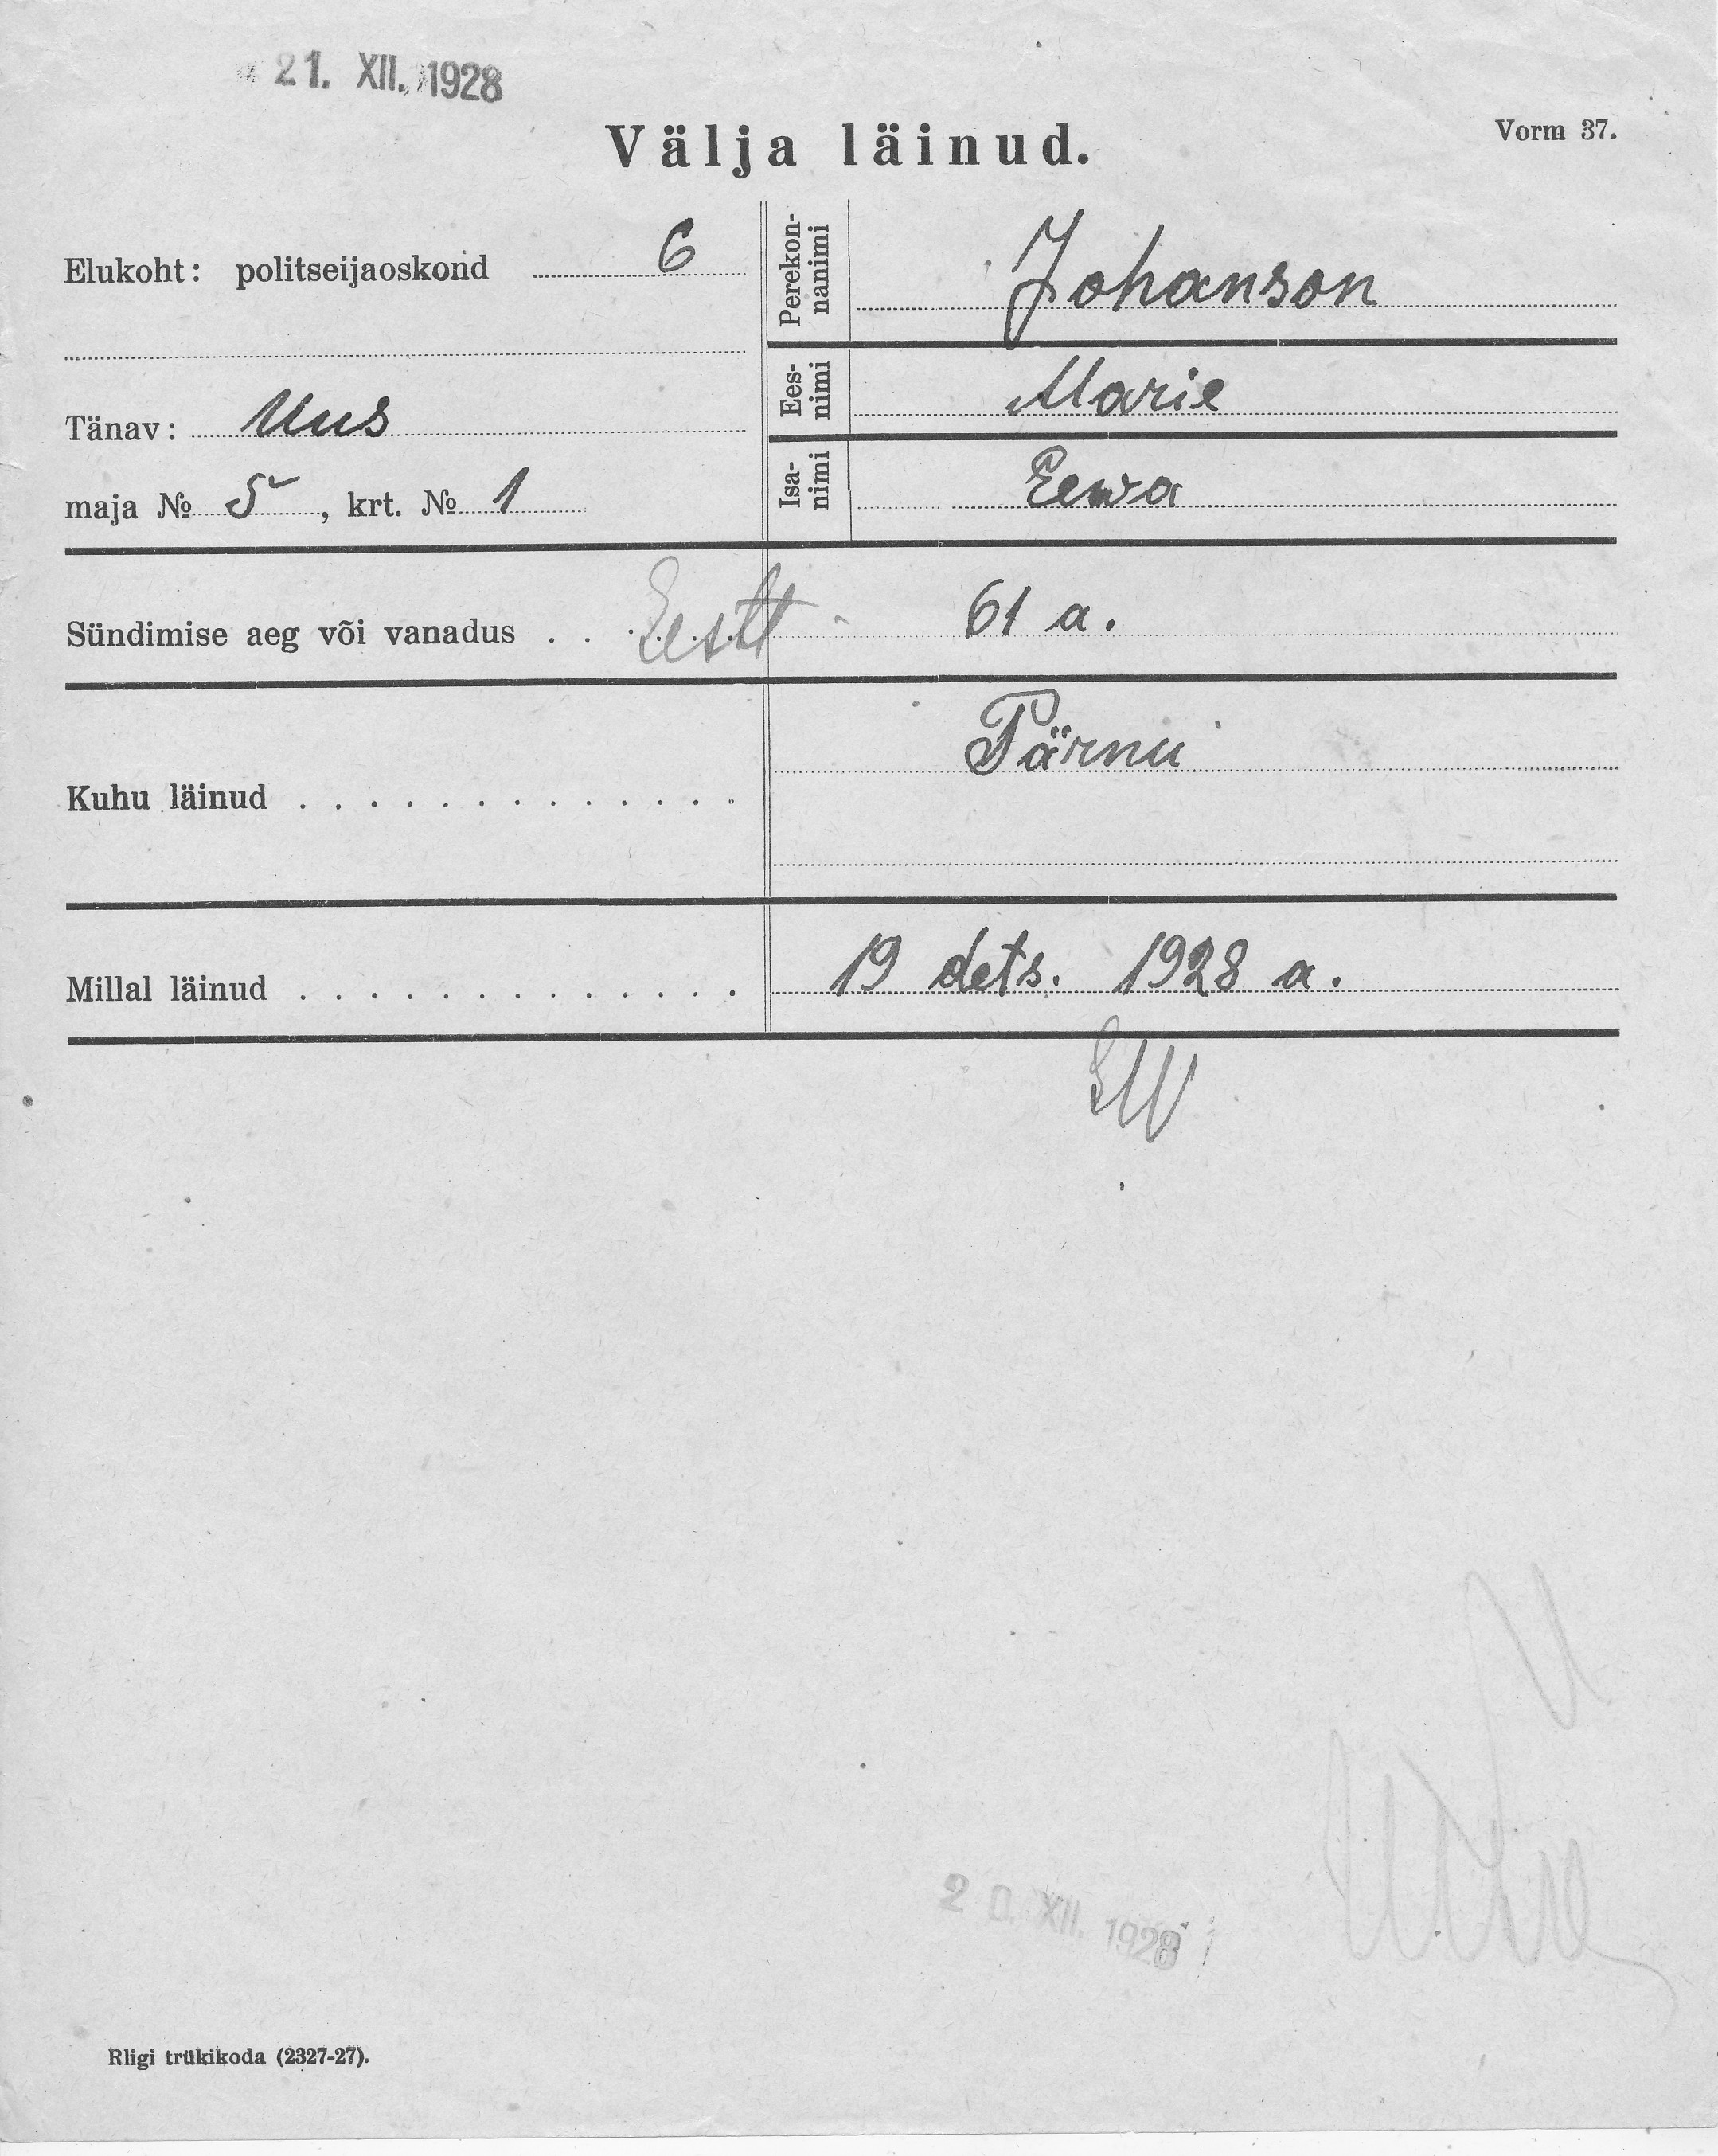 21. XII. 1928
Välja läinud.
Vorm 37.
Elukoht: politseijaoskond 6
Tänav: Uus
maja № 5, krt. № 1
Perekon-
nanimi
Johanson
Ees-
nimi
Marie
Isa-
nimi
Eewa
Sündimise aeg või vanadus . . . . . . Eesti 61 a.
Kuhu läinud . . . . . . . . . . . . . Pärnu
Millal läinud . . . . . . . . . . . . . 19 dets. 1928 a.
20. XII. 1928
Riigi trükikoda (2327-27).